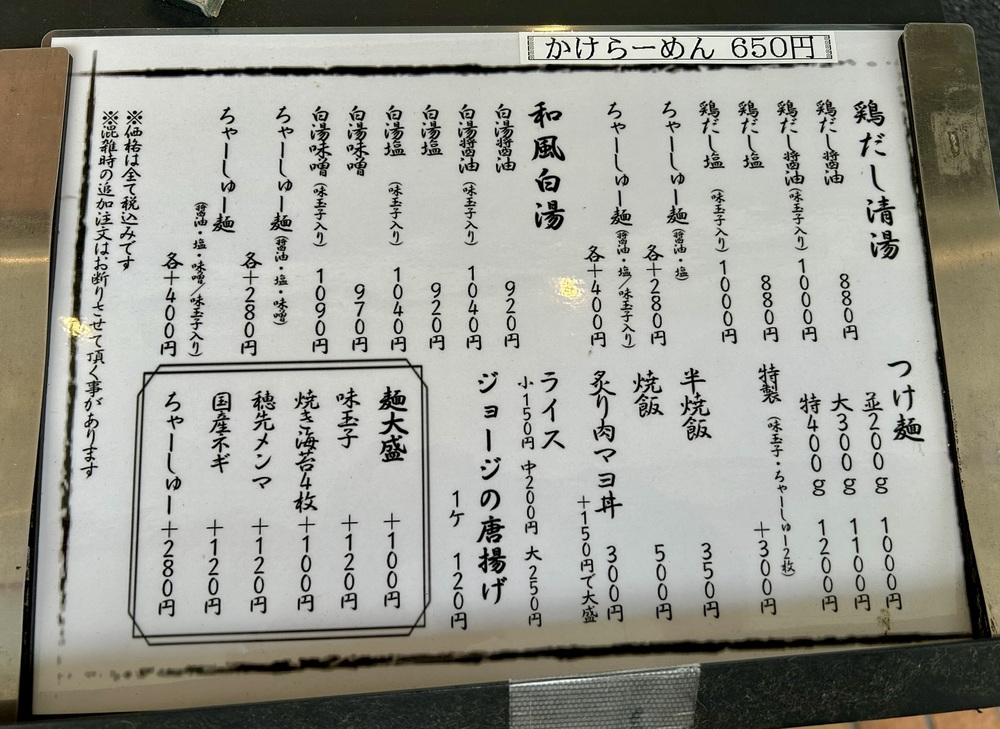 かけらーめん 650円
鶏だし清湯
鶏だし醤油 880円
鶏だし醤油(味玉子入り) 1000円
鶏だし塩 880円
鶏だし塩(味玉子入り) 1000円
ちゃーしゅー麺(醤油・塩) 各+280円
ちゃーしゅー麺(醤油・塩/味玉子入り) 各+400円
和風白湯
白湯醤油 920円
白湯醤油(味玉子入り) 1040円
白湯塩 920円
白湯塩(味玉子入り) 1040円
白湯味噌 970円
白湯味噌(味玉子入り) 1090円
ちゃーしゅー麺(醤油・塩・味噌) 各+280円
ちゃーしゅー麺
(醤油・塩・味噌/味玉子入り) 各+400円
※価格は全て税込みです
※混雑時の追加注文はお断りさせて頂く事があります
つけ麺
並200g 1000円
大300g 1100円
特400g 1200円
特製(味玉子・ちゃーしゅー2枚) +300円
半焼飯 350円
焼飯 500円
炙り肉マヨ丼 300円
+150円で大盛
ライス
小150円 中200円 大250円
ジョージの唐揚げ
1ケ 120円
麺大盛 +100円
味玉子 +120円
焼き海苔4枚 +100円
穂先メンマ +120円
国産ネギ +120円
ちゃーしゅー +280円